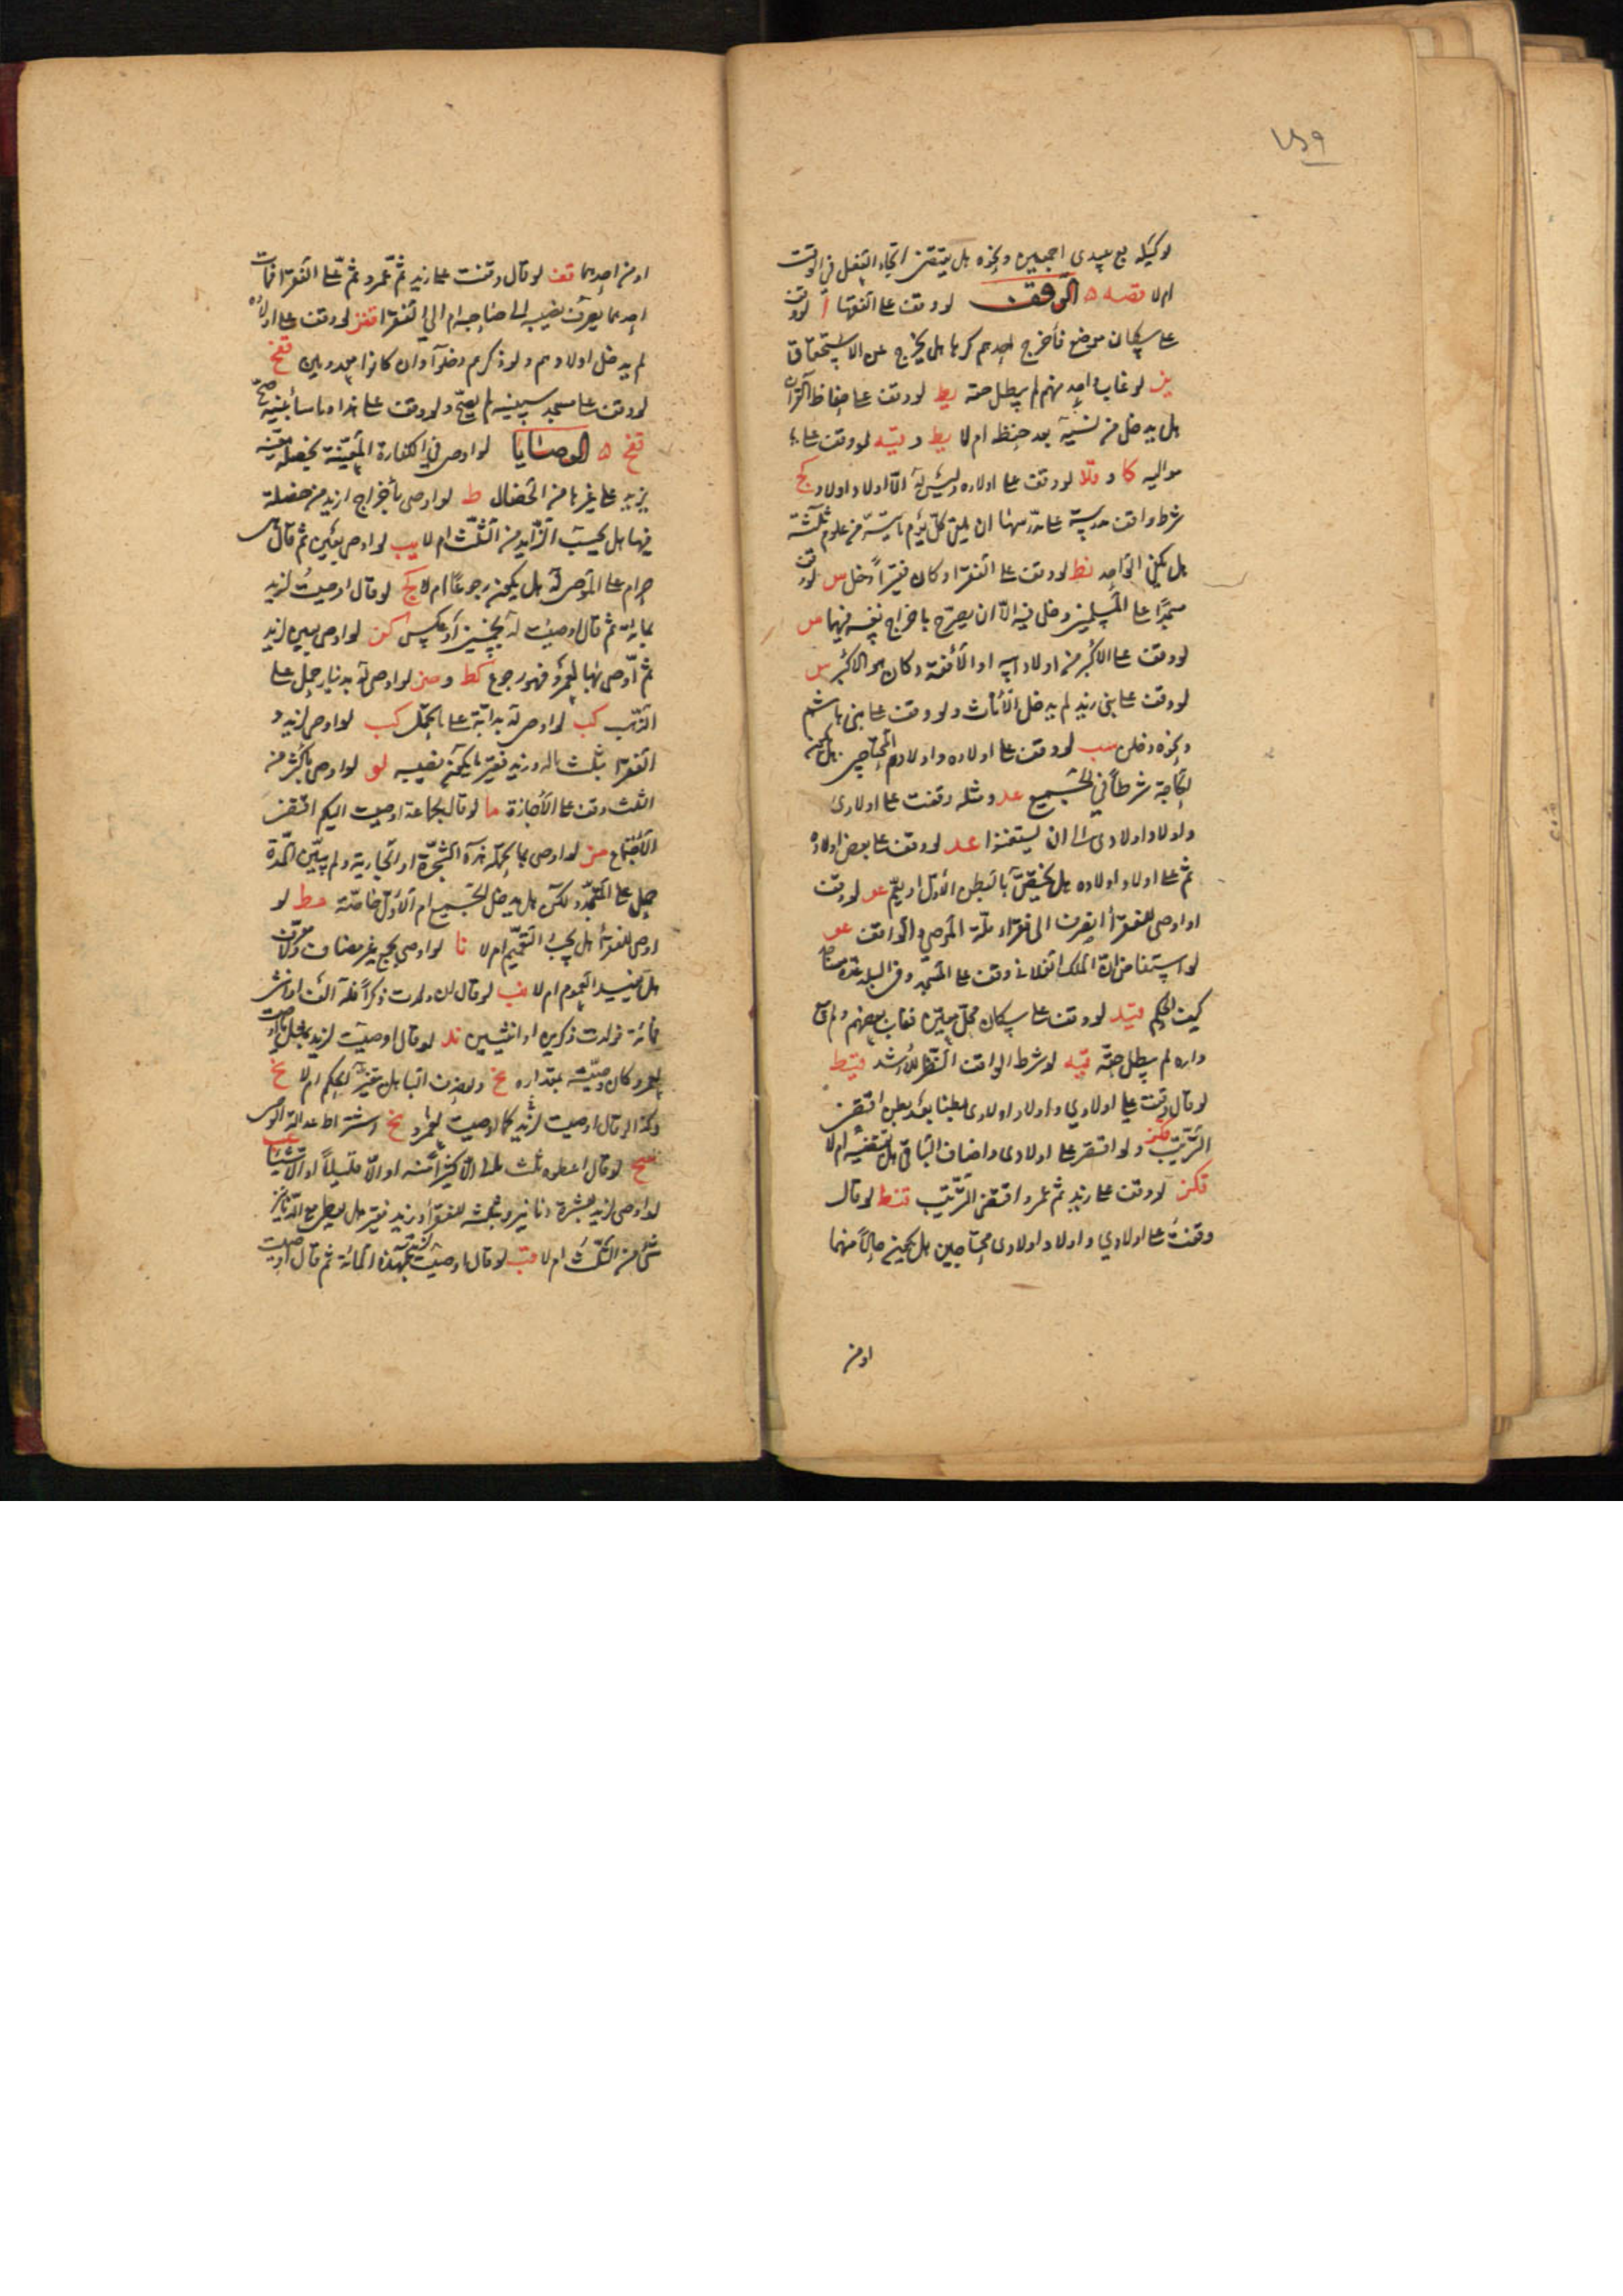 ١٥٩
لوكيله بع عبيدى اجمعين ونحوه هل يقتضى اتحاد الفعل فى الوقت
ام لا قصه ه الوقف لو وقف على الفقها أ لو وقف
على سكان موضع فأخرج احدهم كرها هل يخرج عن الاستحقاق
يز لو غاب واحد منهم لم يبطل حقه يط لو وقف على حفاظ القران
هل يدخل من نسيه بعد حفظه ام لا يط و قيه لو وقف على
مواليه كا و قلا لو وقف على اولاده وليس له الا اولاد اولاد كج
شرط واقف مدرسة على مدرسها ان يلقى كل يوم ما تيسر من علوم ثلثة
هل يكفى الواحد نط لو وقف على الفقرا وكان فقيرا دخل س لو وقف
مسجدا على المسلمين دخل فيه الا ان يصرح باخراج نفسه فيهما س
لو وقف على الاكبر من اولاد ابيه او الافقه وكان هو الاكبر س
لو وقف على بنى زيد لم يدخل الاناث ولو وقف على بنى هاشم
ونحوه دخلن سب لو وقف على اولاده واولادهم المحتاجين هل تكون
الحاجة شرطا فى الجميع عد ومثله وقفت على اولادى
واولاد اولادى الى ان يستغنوا عد لو وقف على بعض اولاده
ثم على اولاد اولاده هل يختص بالبطن الاول او يعم عو لو وقف
او اوصى للفقرا انصرف الى فقراء ملة الموصى والواقف عو
لو استفاض ان الملك الفلانى وقف على المسجد وفى البلد عدة مساجد
كيف الحكم قيد لو وقف على سكان محل معين فغاب بعضهم ولم يبع
داره لم يبطل حقه قيه لو شرط الواقف النظر للارشد قيط
لو قال وقفت على اولادى واولاد اولادى بطنا بعد بطن اقتضى
الترتيب قكز ولو اقتصر على اولادى واضاف الباقى هل يقتضيه ام لا
قكز لو وقف على زيد ثم عمرو اقتضى الترتيب قنط لو قال
وقفت على اولادي واولاد اولادى محتاجين هل يكون حالا منهما
او من
او من احدهما قعد لو قال وقفت على زيد ثم عمرو ثم على الفقرا فمات
احدهما يصرف نصيبه الى صاحبه ام الى الفقرا قفز لو وقف على اولاده
لم يدخل اولادهم ولو ذكرهم دخلوا وان كانوا معدومين قفح
لو وقف على مسجد سيبنيه لم يصح ولو وقف على هذا وما سأبنيه صح
قفح ه الوصايا لو اوصى فى الكفارة المعينة بخصلة معينة
يزيد على غيرها من الخصال ط لو اوصى بأخراج ازيد من خصلة
فيها هل يحسب الزايد من الثلث ام لا يب لو اوصى بعين ثم قال هى
حرام على الموصى له هل يكون رجوعا ام لا كج لو قال اوصيت لزيد
بمائة ثم قال اوصيت له بخمسين او عكس لو اوصى بعين لزيد
ثم اوصى بها لعمرو فهو رجوع كط و صز لو اوصى له بدينار حمل على
الذهب كب لو اوصى له بدابة على ما يحمل كب لو اوصى لزيد و
الفقرا بثلث ماله وزيد فقير ما يكون نصيبه لو لو اوصى باكثر من
الثلث وقف على الاجازة ما لو قال لجماعة اوصيت اليكم اقتضى
الاجتماع مز لو اوصى بما تحمله هذه الشجرة او الجارية ولم يبين المدة
حمل على المتجدد ولكن هل يدخل الجميع ام الاول خاصة مط لو
اوصى للفقرا هل يجب التعميم ام لا نا لو اوصى بجمع غير مضاف ولا معرف
هل يفيد العموم ام لا نب لو قال ان ولدت ذكرا فله الف او انثى
فمائة فولدت ذكرين او انثيين ند لو قال اوصيت لزيد بمثل ما اوصيت
لعمرو وكان وصيته بمقداره نح
وكذا لو قال اوصيت لزيد كما اوصيت لعمرو نح اشتراط عدالة الوصى عب
لو قال اعطوه ثلث مالى الا كثيرا منه او الا قليلا او الا شيئا
لو اوصى لزيد بعشرة دنانير وبثلثه للفقرا وزيد فقير هل يعطى مع الدنانير
شئ من الثلث ام لا قب لو قال اوصيت لزيد بهذه المائة ثم قال اوصيت